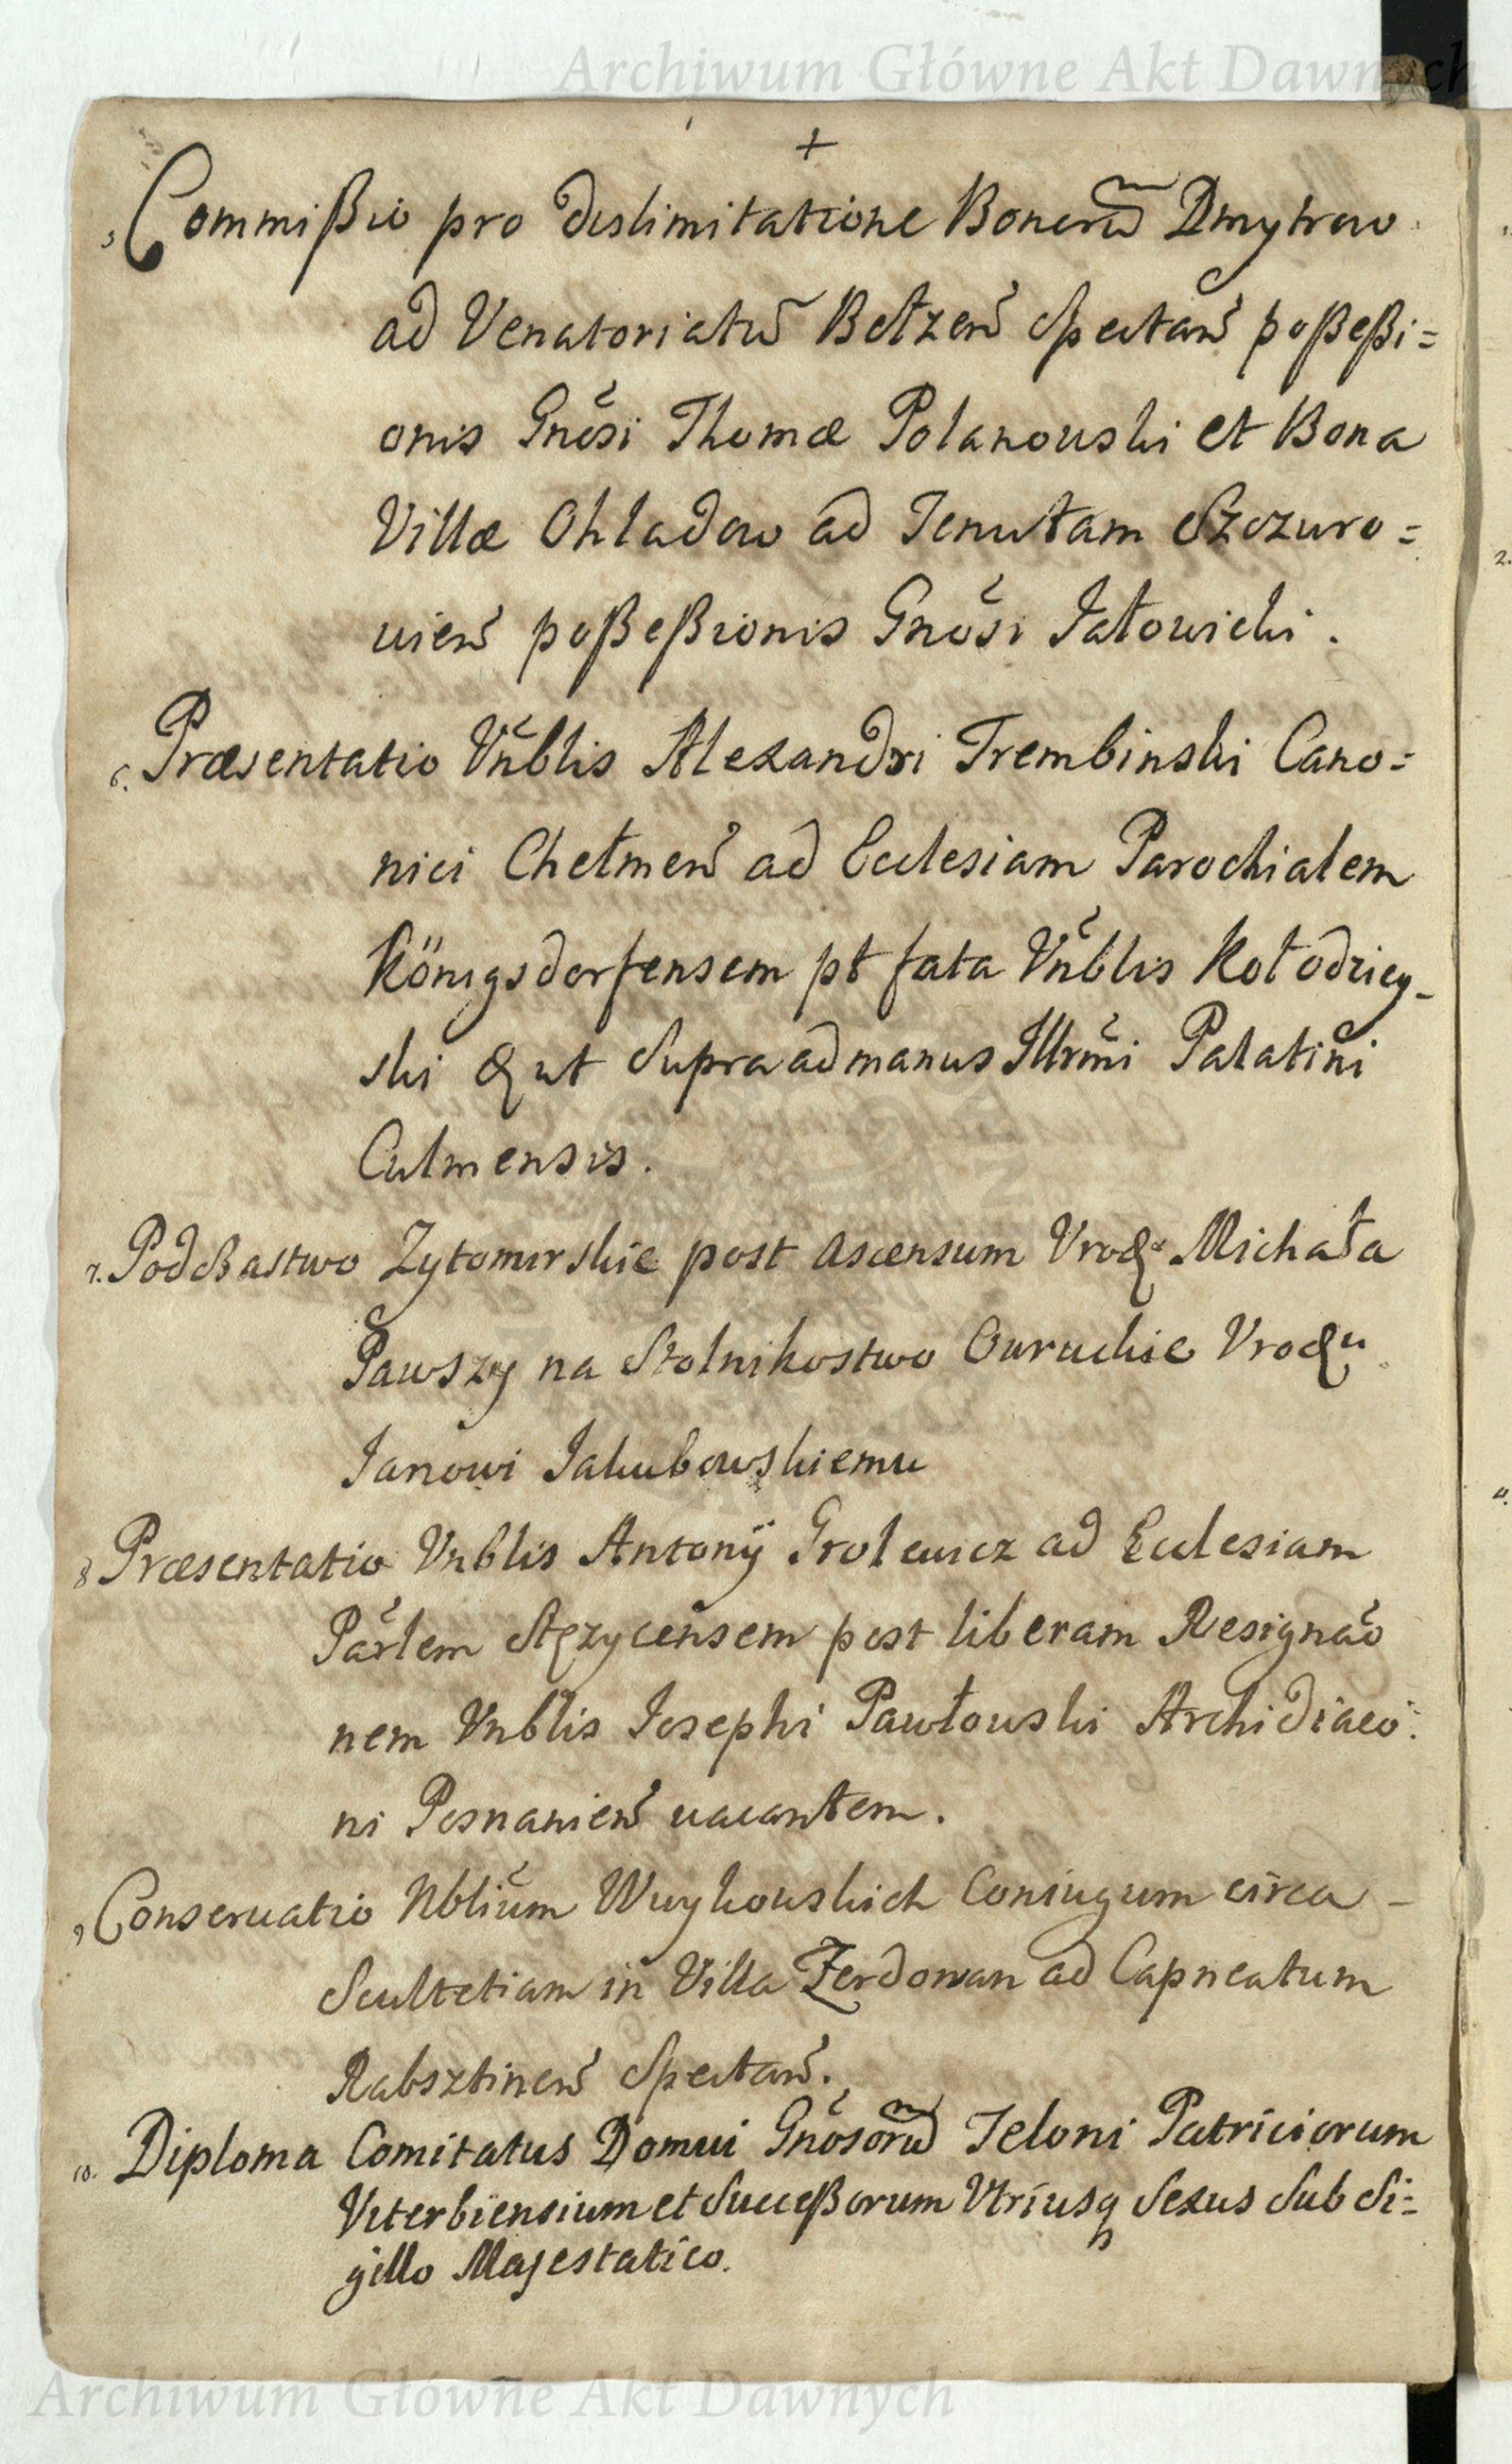 Archiwum Główne Akt Dawnych
+
5 Commißio pro dislimitatione Bonorũ Dmytrow
ad Venatoriatũ Bełzeñ Spectañ poßeßi=
onis Gnõsi Thomæ Polanowski et Bona
Villæ Ohladow ad Tenutam Szczuro=
wieñ poßeßionis Gnõsi Jałowicki.
6. Præsentatio Vñblis Alexandri Trembinski Cano=
nici Chełmeñ ad Ecclesiam Parochialem
Königsdorfensem pt fata Vñblis Kołodziey-
ski & ut Supra ad manus Illrmi Palatini
Culmensis.
7. Podczastwo Zytomirskie post ascensum Urodz° Michała
Pawszy na Stolnikostwo Owruckie Urodzu
Janowi Jakubowskiemu
8 Præsentatio Vnblis Antonÿ Grolewicz ad Ecclesiam
Parlem Stęzycensem post liberam Resignão
nem Vnblis Josephi Pawłowski Archidiaco:
ni Posnanieñ vacantem.
9 Conservatio Nblium Wuykowskich Coniugum circa -
Scultetiam in Villa Zerdowan ad Capneatum
Rabsztineñ Spectañ.
10. Diploma Comitatus Domui Gnõsorũ Teloni Patriciorum
Viterbiensium et Succeßorum Utriusq Sexus Sub Si=
gillo Majestatico.
Archiwum Główne Akt Dawnych